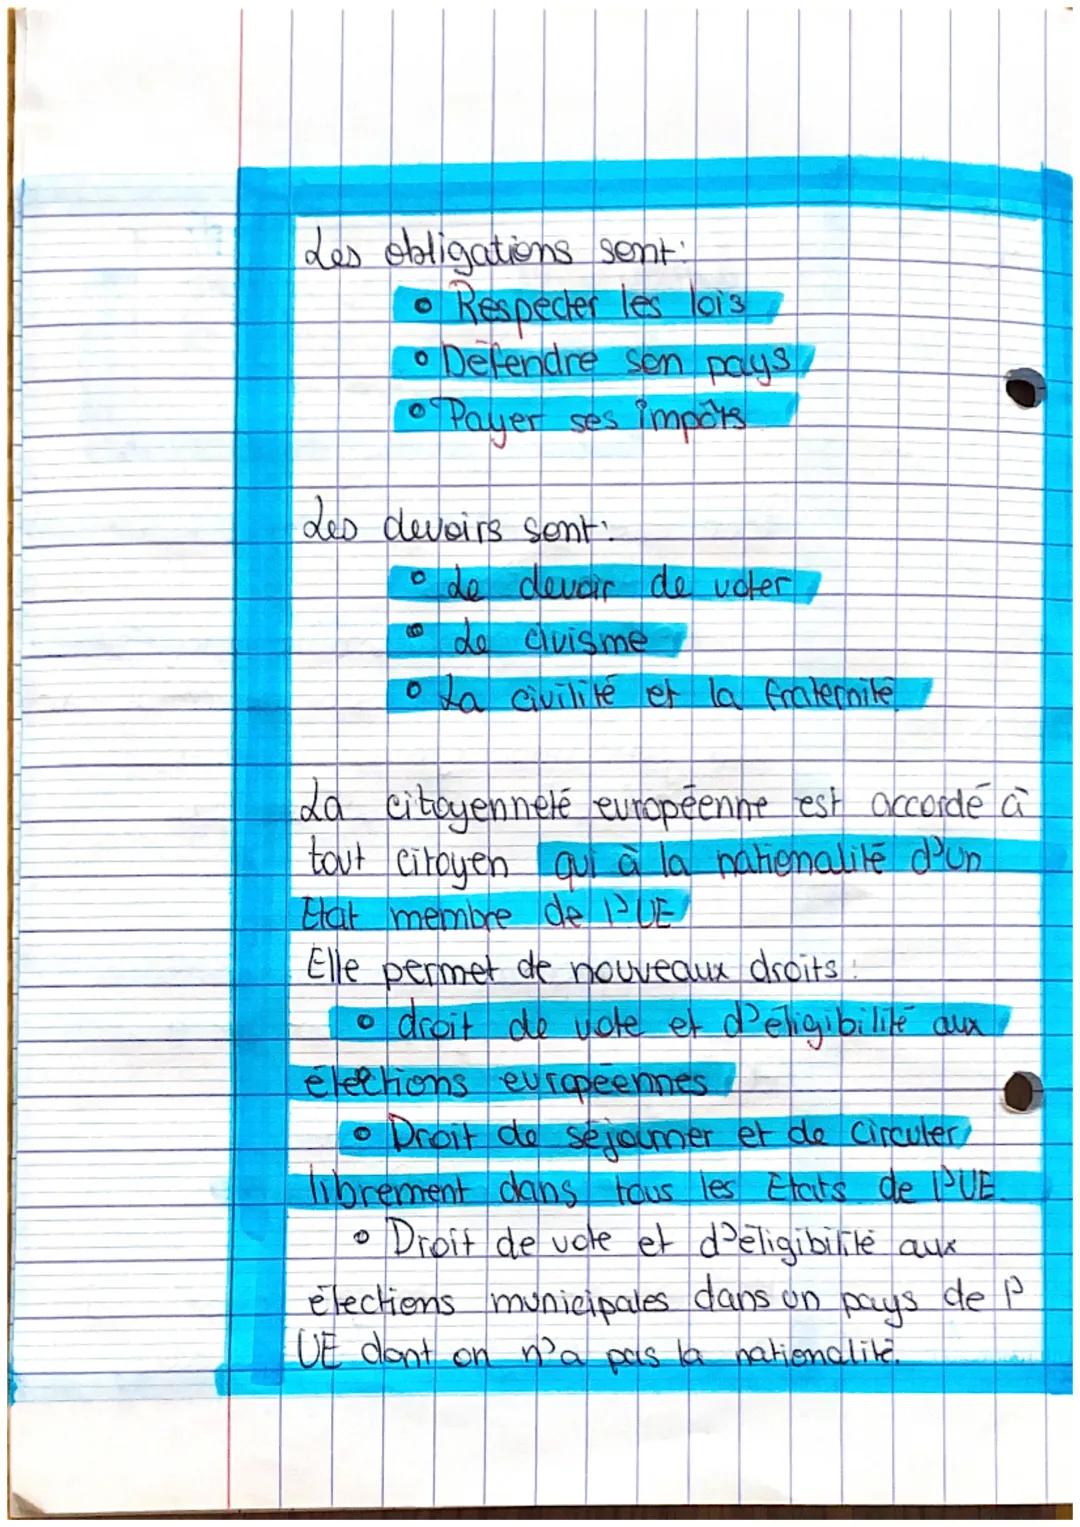 Les obligations sont:
• Respecter les lois
• Défendre son pays
• Payer ses impôts
Les devoirs sont:
• Le devoir de voter
• Le civisme
• La civilité et la fraternité
La citoyenneté européenne est accordé à
tout citoyen qui à la nationalité d'un
Etat membre de l'UE
Elle permet de nouveaux droits:
• droit de vote et d'éligibilité aux
élections européennes
• Droit de séjourner et de circuler
librement dans tous les Etats de l'UE.
• Droit de vote et d'éligibilité aux
élections municipales dans un pays de l'
UE dont on n'a pas la nationalité.